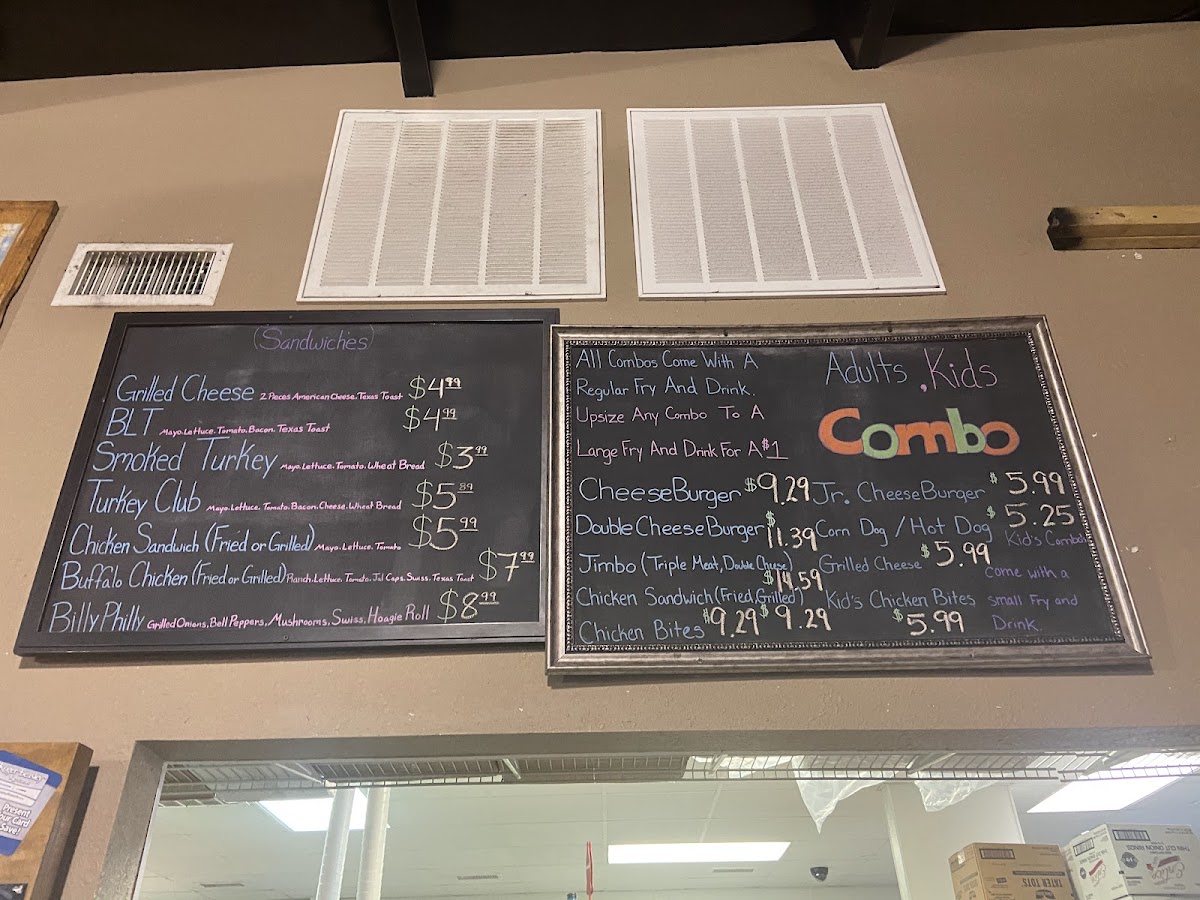 (Sandwiches)
Grilled Cheese 2 Pieces American Cheese. Texas Toast $4.99
BLT Mayo. Lettuce. Tomato. Bacon. Texas Toast $4.99
Smoked Turkey Mayo. Lettuce. Tomato. Wheat Bread $3.99
Turkey Club Mayo. Lettuce. Tomato. Bacon. Cheese. Wheat Bread $5.89
Chicken Sandwich (Fried or Grilled) Mayo. Lettuce. Tomato $5.99
Buffalo Chicken (Fried or Grilled) Ranch. Lettuce. Tomato. Jal Caps. Swiss. Texas Toast $7.99
Billy Philly Grilled Onions, Bell Peppers, Mushrooms, Swiss, Hoagie Roll $8.99
All Combos Come With A
Regular Fry And Drink.
Upsize Any Combo To A
Large Fry And Drink For A $1
CheeseBurger $9.29
Double CheeseBurger $11.39
Jimbo (Triple Meat, Double Cheese) $14.59
Chicken Sandwich (Fried, Grilled) $9.29
Chicken Bites $9.29
Adults, Kids
Combo
Jr. CheeseBurger $5.99
Corn Dog / Hot Dog $5.25
Grilled Cheese $5.99
Kid's Chicken Bites $5.99
Kid's Combos
come with a
small Fry and
Drink.
Present
Your Card
Save!
TATER TOTS
THIN CUT ONION RINGS